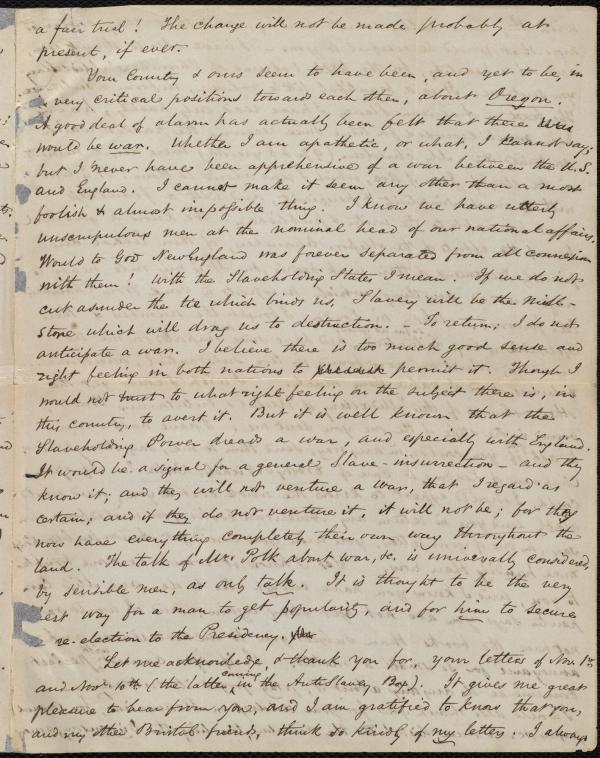 a fair trial! The change will not be made probably at
present, if ever.
Your Country & ours seem to have been, and yet to be, in
very critical positions towards each other, about Oregon.
A good deal of alarm has actually been felt that there
would be war. Whether I am apathetic, or what, I cannot say;
but I never have been apprehensive of a war between the U.S.
and England. I cannot make it seem any other than a most
foolish & almost impossible thing. I know we have utterly
unscrupulous men at the nominal head of our national affairs.
Would to God New England was forever separated from all connexion
with them! With the Slaveholding States I mean. If we do not
cut asunder the tie which binds us, Slavery will be the mill-
stone which will drag us to destruction. - To return; I do not
anticipate a war. I believe there is too much good sense and
right feeling in both nations to permit it. Though I
would not trust to what right feeling on the subject there is, in
this country, to avert it. But it is well known that the
Slaveholding Power dreads a war, and especially with England.
It would be a signal for a general Slave-insurrection - and they
know it; and they will not venture a war, that I regard as
certain; and if they do not venture it, it will not be; for they
now have everything completely their own way throughout the
land. The talk of Mr. Polk about war, &c. is universally considered,
by sensible men, as only talk. It is thought to be the very
best way for a man to get popularity, and for him to secure
re-election to the Presidency.
Let me acknowledge, & thank you for, your letters of Nov. 1st
and Nov. 10th (the latter coming in the AntiSlavery Box). It gives me great
pleasure to hear from you, and I am gratified to know that you,
and my other Bristol friends, think so kindly of my letters. I always